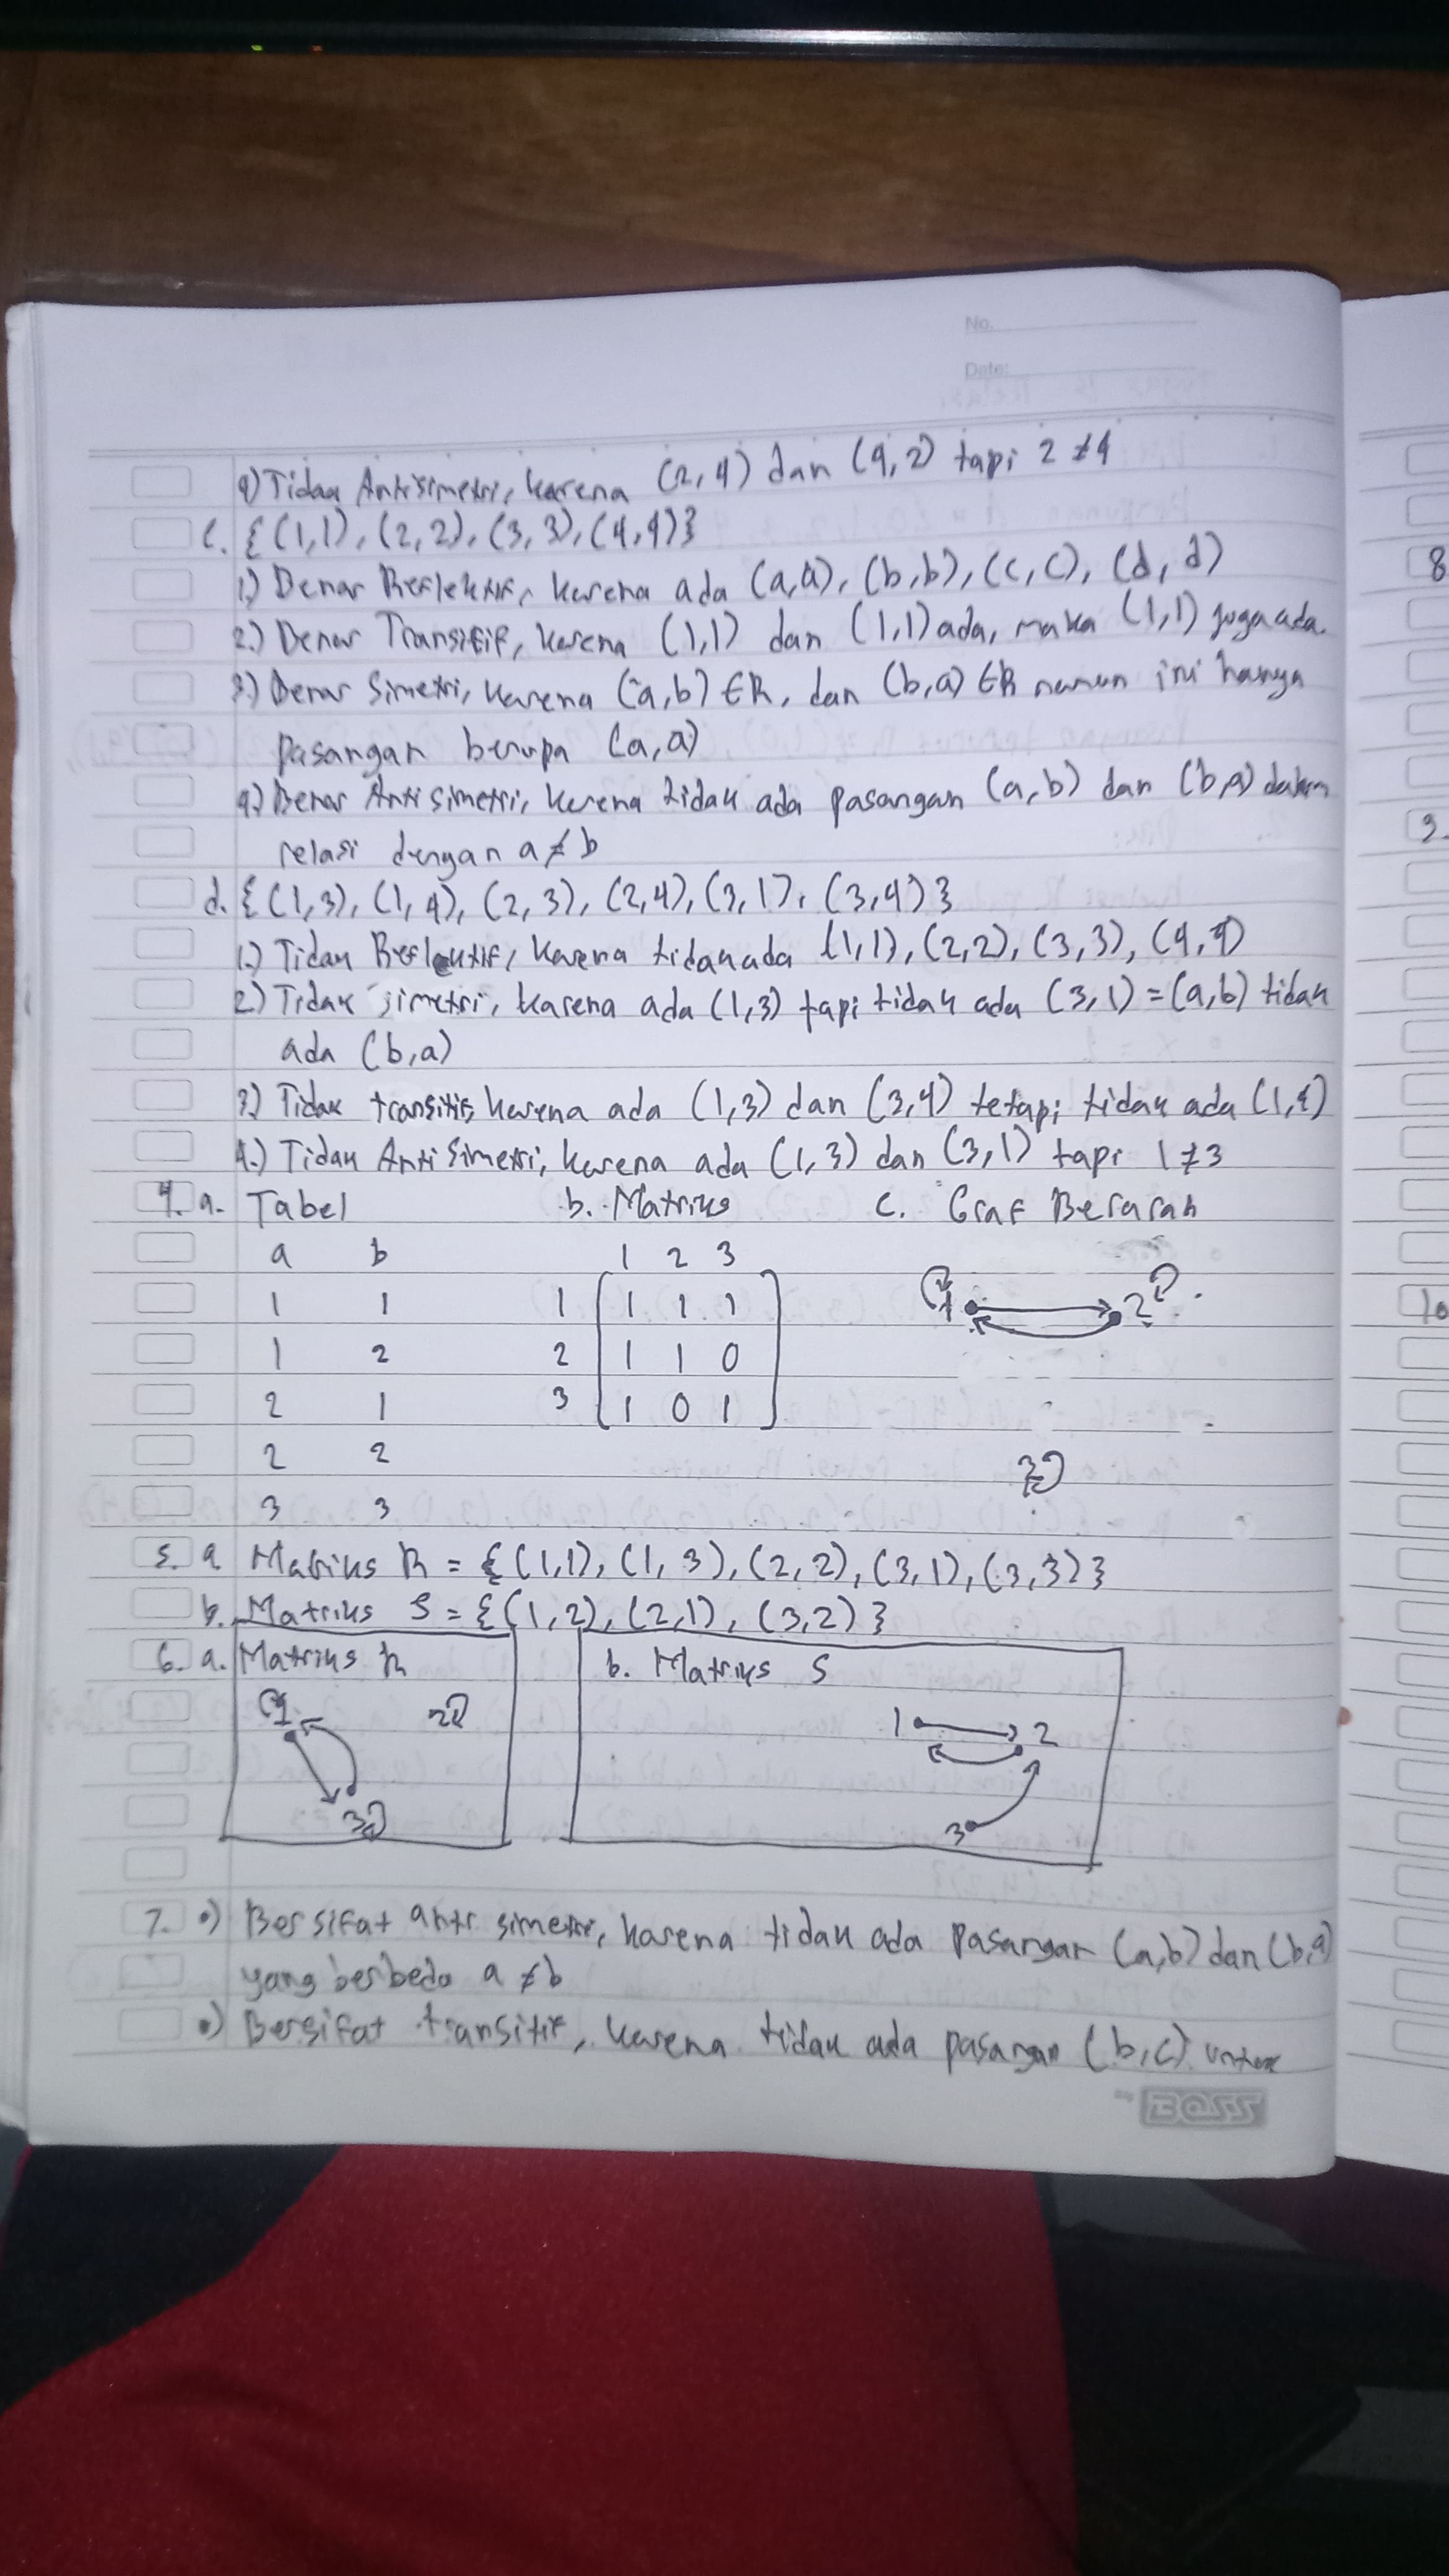 No.
Date:
4) Tidak Antisimetri, karena (2,4) dan (4,2) tapi 2 ≠ 4
c. {(1,1), (2,2), (3,3), (4,4)}
1.) Benar Reflektif, karena ada (a,a), (b,b), (c,c), (d,d)
2.) Benar Transitif, karena (1,1) dan (1,1) ada, maka (1,1) juga ada.
3.) Benar Simetri, karena (a,b) ∈ R, dan (b,a) ∈ R namun ini hanya
pasangan berupa (a,a)
4.) Benar Anti simetri, karena tidak ada pasangan (a,b) dan (b,a) dalam
relasi dengan a ≠ b
d. {(1,3), (1,4), (2,3), (2,4), (3,1), (3,4)}
1.) Tidak Reflektif, karena tidak ada (1,1), (2,2), (3,3), (4,4)
2.) Tidak simetri, karena ada (1,3) tapi tidak ada (3,1) = (a,b) tidak
ada (b,a)
3.) Tidak transitif karena ada (1,3) dan (3,4) tetapi tidak ada (1,4)
4.) Tidak Anti Simetri, karena ada (1,3) dan (3,1) tapi 1 ≠ 3
4. a. Tabel b. Matriks c. Graf Berarah
a b 1 2 3
1 1 1 1 1 1 1 2
1 2 2 1 1 0
2 1 3 1 0 1
2 2 3
3 3
5. a Matriks R = {(1,1), (1,3), (2,2), (3,1), (3,3)}
b. Matriks S = {(1,2), (2,1), (3,2)}
6. a. Matriks R b. Matriks S
1 2 1 2
3 3
7. •) Bersifat anti simetri, karena tidak ada pasangan (a,b) dan (b,a)
yang berbeda a ≠ b
•) Bersifat transitif, karena tidak ada pasangan (b,c) untuk
BOSS
8
9.
10